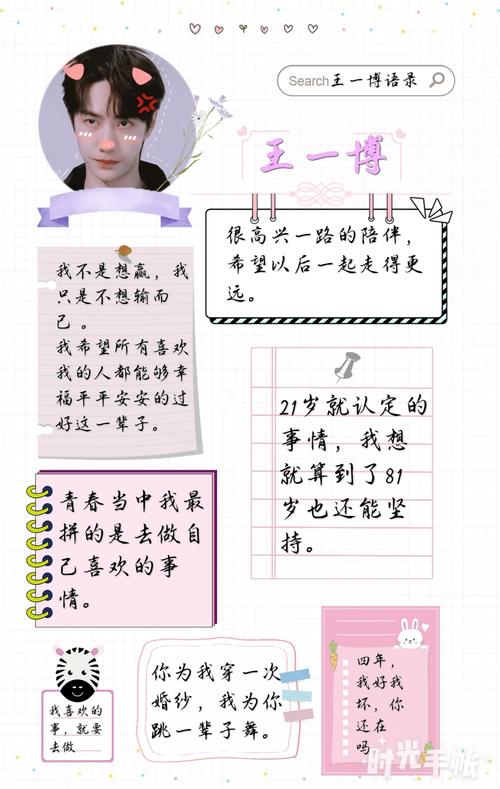 Search王一博语录
王一博
很高兴一路的陪伴，
希望以后一起走得更
远。
我不是想赢，我
只是不想输而
已。
我希望所有喜欢
我的人都能够幸
福平平安安的过
好这一辈子。
21岁就认定的
事情，我想
就算到了81
岁也还能坚
持。
青春当中我最
拼的是去做自
己喜欢的事
情。
我喜欢的
事，就要
去做
你为我穿一次
婚纱，我为你
跳一辈子舞。
四年，
我好我
坏，你
还在
吗
时光手帐